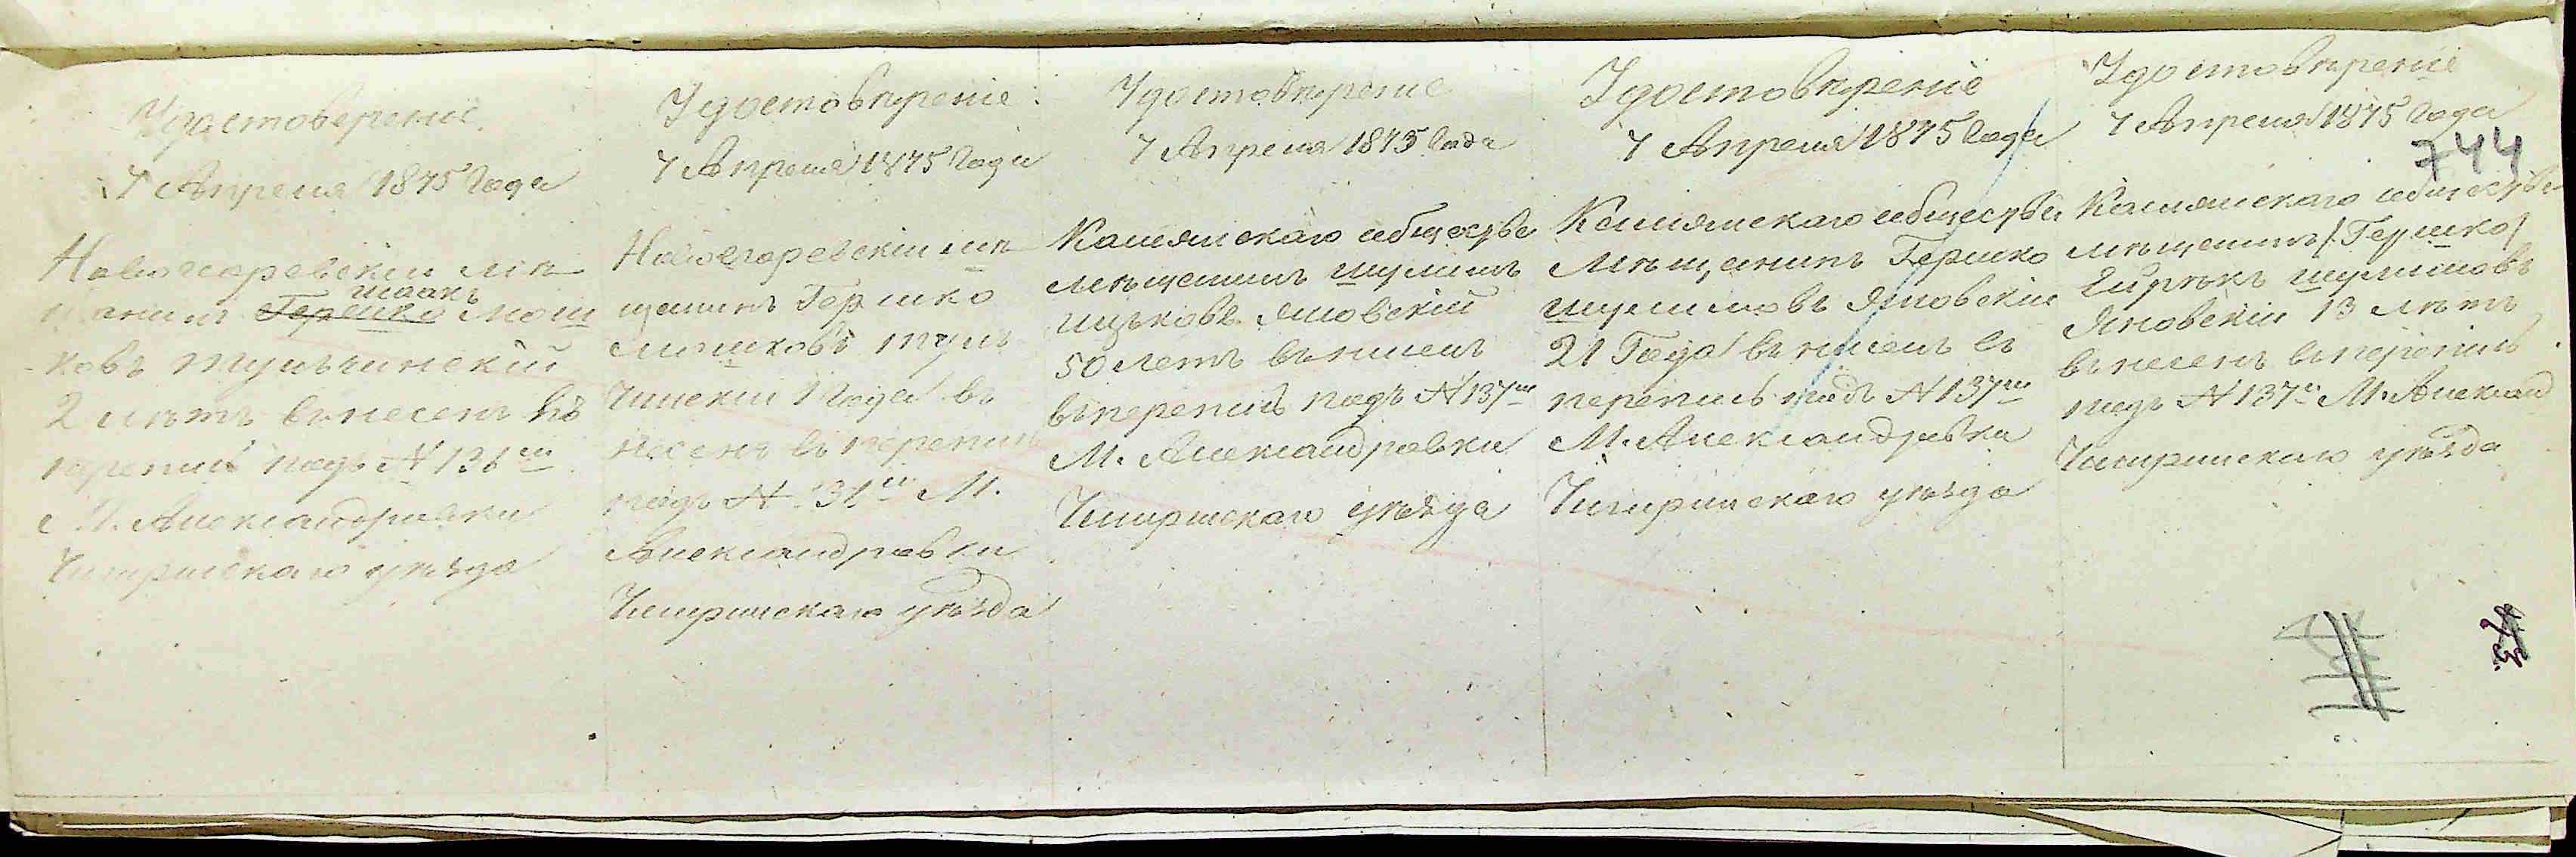 Удостоверенiе.
7 Апреля 1875 Года
Новогеоргевскiй мѣ
щанинъ Гершко Исаакъ Мош
ковъ Тульчинскiй
2 лѣтъ вънесенъ въ
перепись подъ N 131мъ
М. Александровки
Чигринскаго уѣзда
Удостовѣренiе.
7 Апреля 1875 Года
мѣ
щанинъ Гершко
Мошковъ Туль
чинскiй 1 Года въ
несенъ въ перепись
подъ N 131мъ М.
Александровки
Чигринскаго уѣзда
Удостовѣренiе
7 Апреля 1875 Года
общества
мѣщанинъ Шулимъ
Ицьковъ Яновскiй
50 летъ вънисенъ
въперепись подъ N 137мъ
М. Александровки
Чигринскаго уѣзда
Удостовѣренiе
7 Апреля 1875 Года
общества
Мѣщанинъ Гершко
Шулимовъ Яновскiй
21 Года вънисенъ въ
перепись подъ N 137мъ
М. Александровка
Чигринскаго уѣзда
Удостовѣренiе
7 Апреля 1875 Года
744
общества
мѣщанинъ /Гершко/
Шулимовъ
Яновскiй 13 лѣтъ
вънесенъ въперепись
подъ N 137м М. Александ
Чигринскаго уѣзда